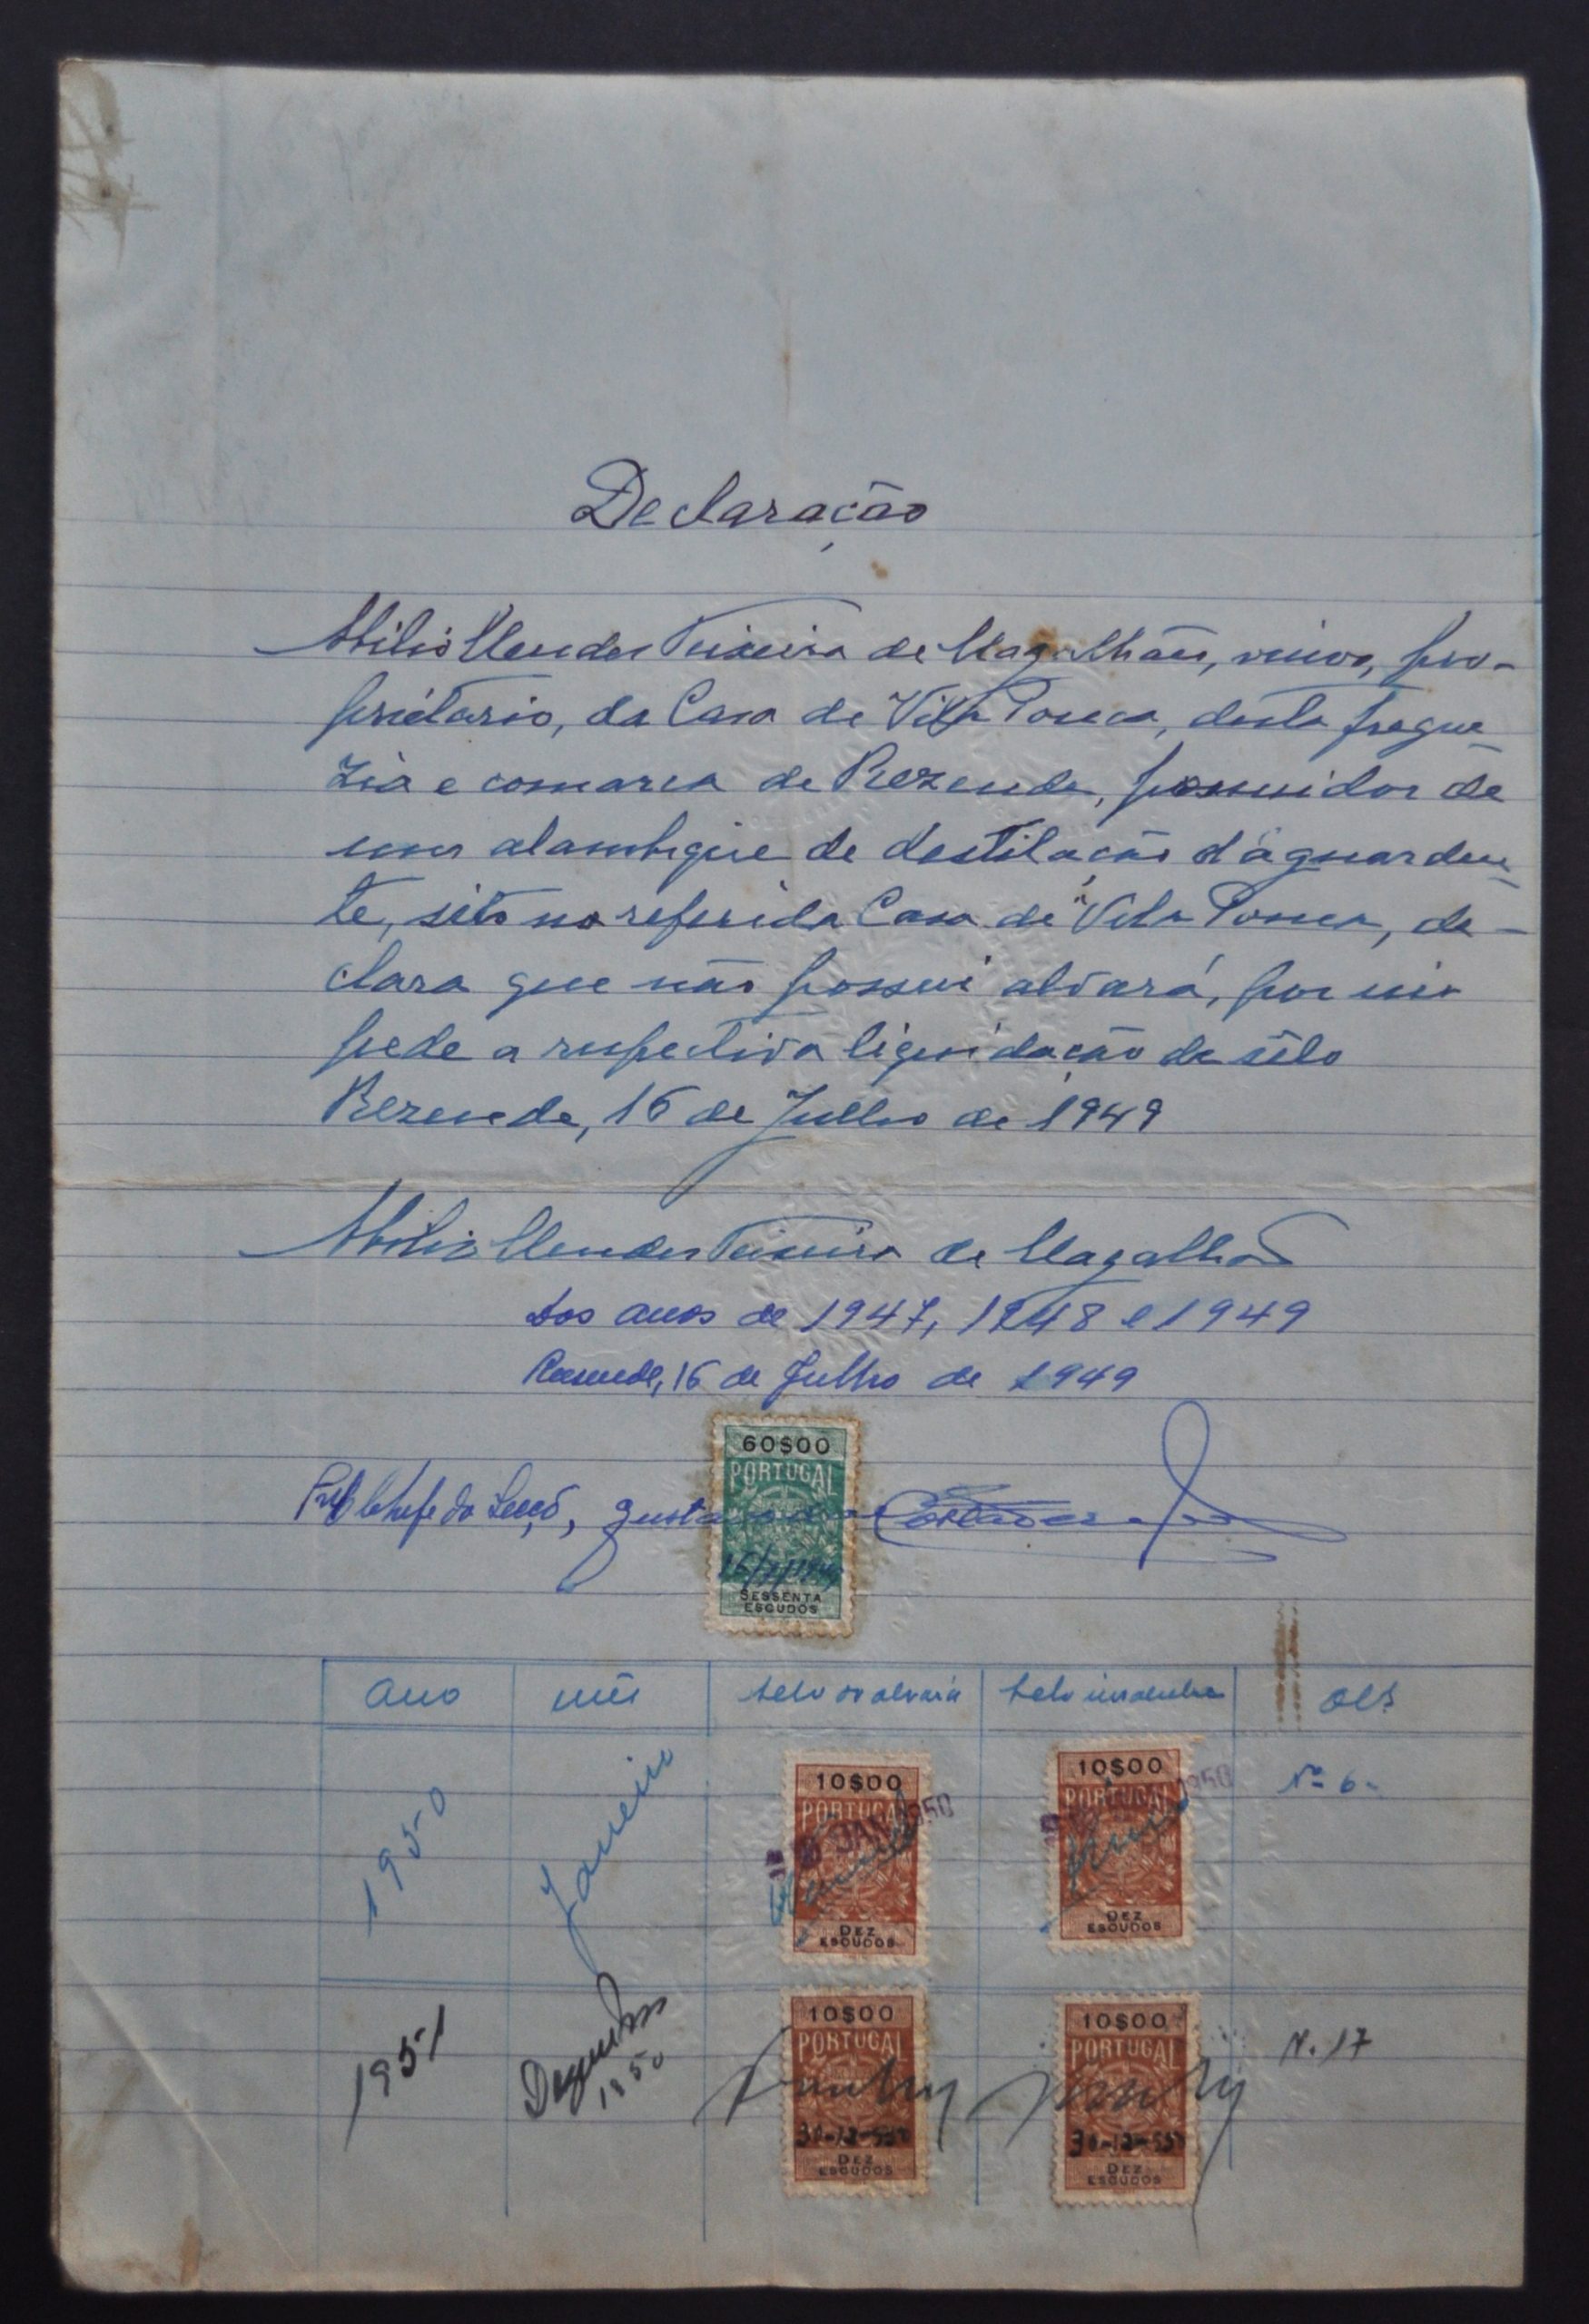 Declaração
Abilio Mendes Teixeira de Magalhães, viuvo, pro-
priétario, da Casa de Vila Pouca, desta fregue-
zia e comarca de Rezende, possuidor de
um alambique de destilação d'aguarden-
te, sito na referida Casa de Vila Pouca, de-
clara que não possui alvará, por isso
pede a respectiva liquidação de sêlo
Rezende, 16 de Julho de 1949
Abilio Mendes Teixeira de Magalhães
dos anos de 1947, 1948 e 1949
Resende, 16 de Julho de 1949
60$00
PORTUGAL
Chefe da Secção,
SESSENTA
ESCUDOS
ano mês selo do alvará selo OBS
1950 Janeiro Nº 6
10$00 10$00
PORTUGAL PORTUGAL
JAN 1950 1950
DEZ DEZ
ESCUDOS ESCUDOS
1951 Dezembro N. 17
1950
10$00 10$00
PORTUGAL PORTUGAL
30-12-950 30-12-950
DEZ DEZ
ESCUDOS ESCUDOS